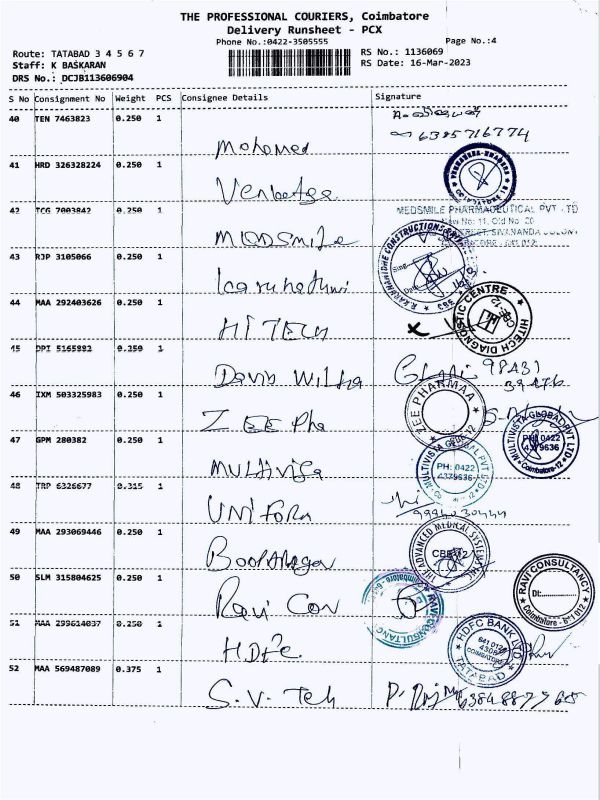 THE PROFESSIONAL COURIERS, Coimbatore
Delivery Runsheet - PCX
Phone No.:0422-3505555
Page No.:4
Route: TATABAD 3 4 5 6 7
RS No.: 1136069
Staff: K BASKARAN
RS Date: 16-Mar-2023
DRS No.: DCJB113606904
S No Consignment No Weight PCS Consignee Details Signature
40 TEN 7463823 0.250 1
6385716774
Mohamed
41 HRD 326328224 0.250 1
42 TCG 7003842 0.250 1
MEDSMILE PHARMACEUTICAL PVT LTD
New No: 11, Old No: 20
STREET, SIVANANDA COLONY
COIMBATORE - 641 012
MEDSMILE
43 RJP 3105066 0.250 1
R. KARUNANIDHE CONSTRUCTION
44 MAA 292403626 0.250 1
HITECH DIAGNOSTIC CENTRE
CBE-12
HITECH
45 DPI 5165882 0.250 1
David Wilsa
98431
46 IXM 503325983 0.250 1
ZEE PHARMAA
CBE-12
ZEE Pha
MULTIVISTA GLOBAL PVT LTD
PH: 0422
4379636
Coimbatore-12
47 GPM 280382 0.250 1
MULTIVISTA GLOBAL PVT LTD
PH: 0422
4379636
Multivisa
48 TRP 6326677 0.315 1
UNIFORM
9994030444
49 MAA 293069446 0.250 1
THE ADVANCED MEDICAL SYSTEMS INC
CBE-12
50 SLM 315804625 0.250 1
RAVI CONSULTANCY
Dt:
Coimbatore - 641 012
Ravi Con
RAVI CONSULTANCY
Coimbatore
51 MAA 299614037 0.250 1
HDFC BANK LTD
641 012
COIMBATORE
TATABAD
HDFC
52 MAA 569487089 0.375 1
S.V. Teh